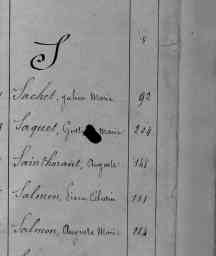 S
Sachet, Julien Marie 92
Saquet, Gust Marie 204
Sainthorant, Auguste 148
Salmon, Pierre 111
Salmon, Auguste Marie 114